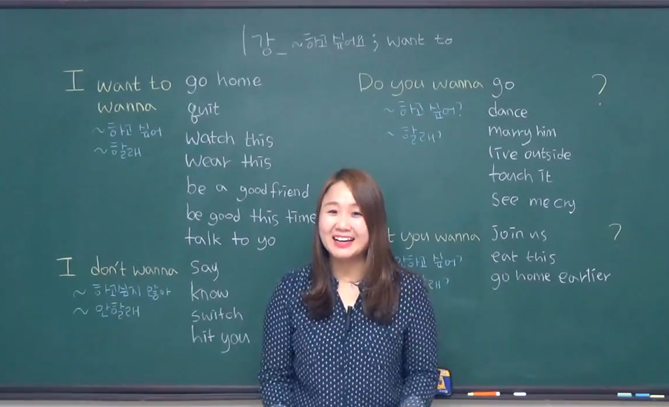 1강_ ~하고 싶어요 ; want to
I want to go home
wanna quit
~하고 싶어 watch this
~할래 wear this
be a good friend
be good this time
talk to yo
I don't wanna say
~하고싶지 않아 know
~안할래 switch
hit you
Do you wanna go ?
~하고 싶어? dance
~할래? marry him
live outside
touch it
see me cry
t you wanna join us ?
하고 싶어? eat this
go home earlier